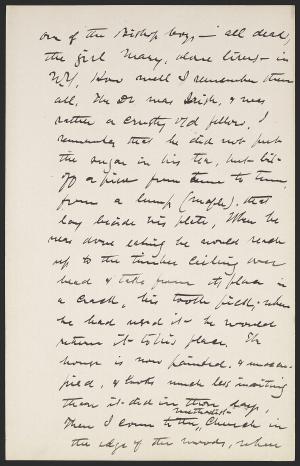 one of the Bishop boys, - all dead,
the girl Mary, alone lives - in
N.Y. How well I remember them
all. The Dr was Irish, & was
rather a crusty old fellow. I
remember that he did not put
the sugar in his tea, but bit
off a piece from time to time,
from a lump (maple), that
lay beside his plate, When he
was done eating he would reach
up to the timber ceiling over
head & take from its place in
a crack, his tooth pick, - when
he had used it - he would
return it to his place. The
house is now painted, & unoccu-
pied, & looks much less inviting
than it did in those days.
Then I come to the methodist Church in
the edge of the woods, where